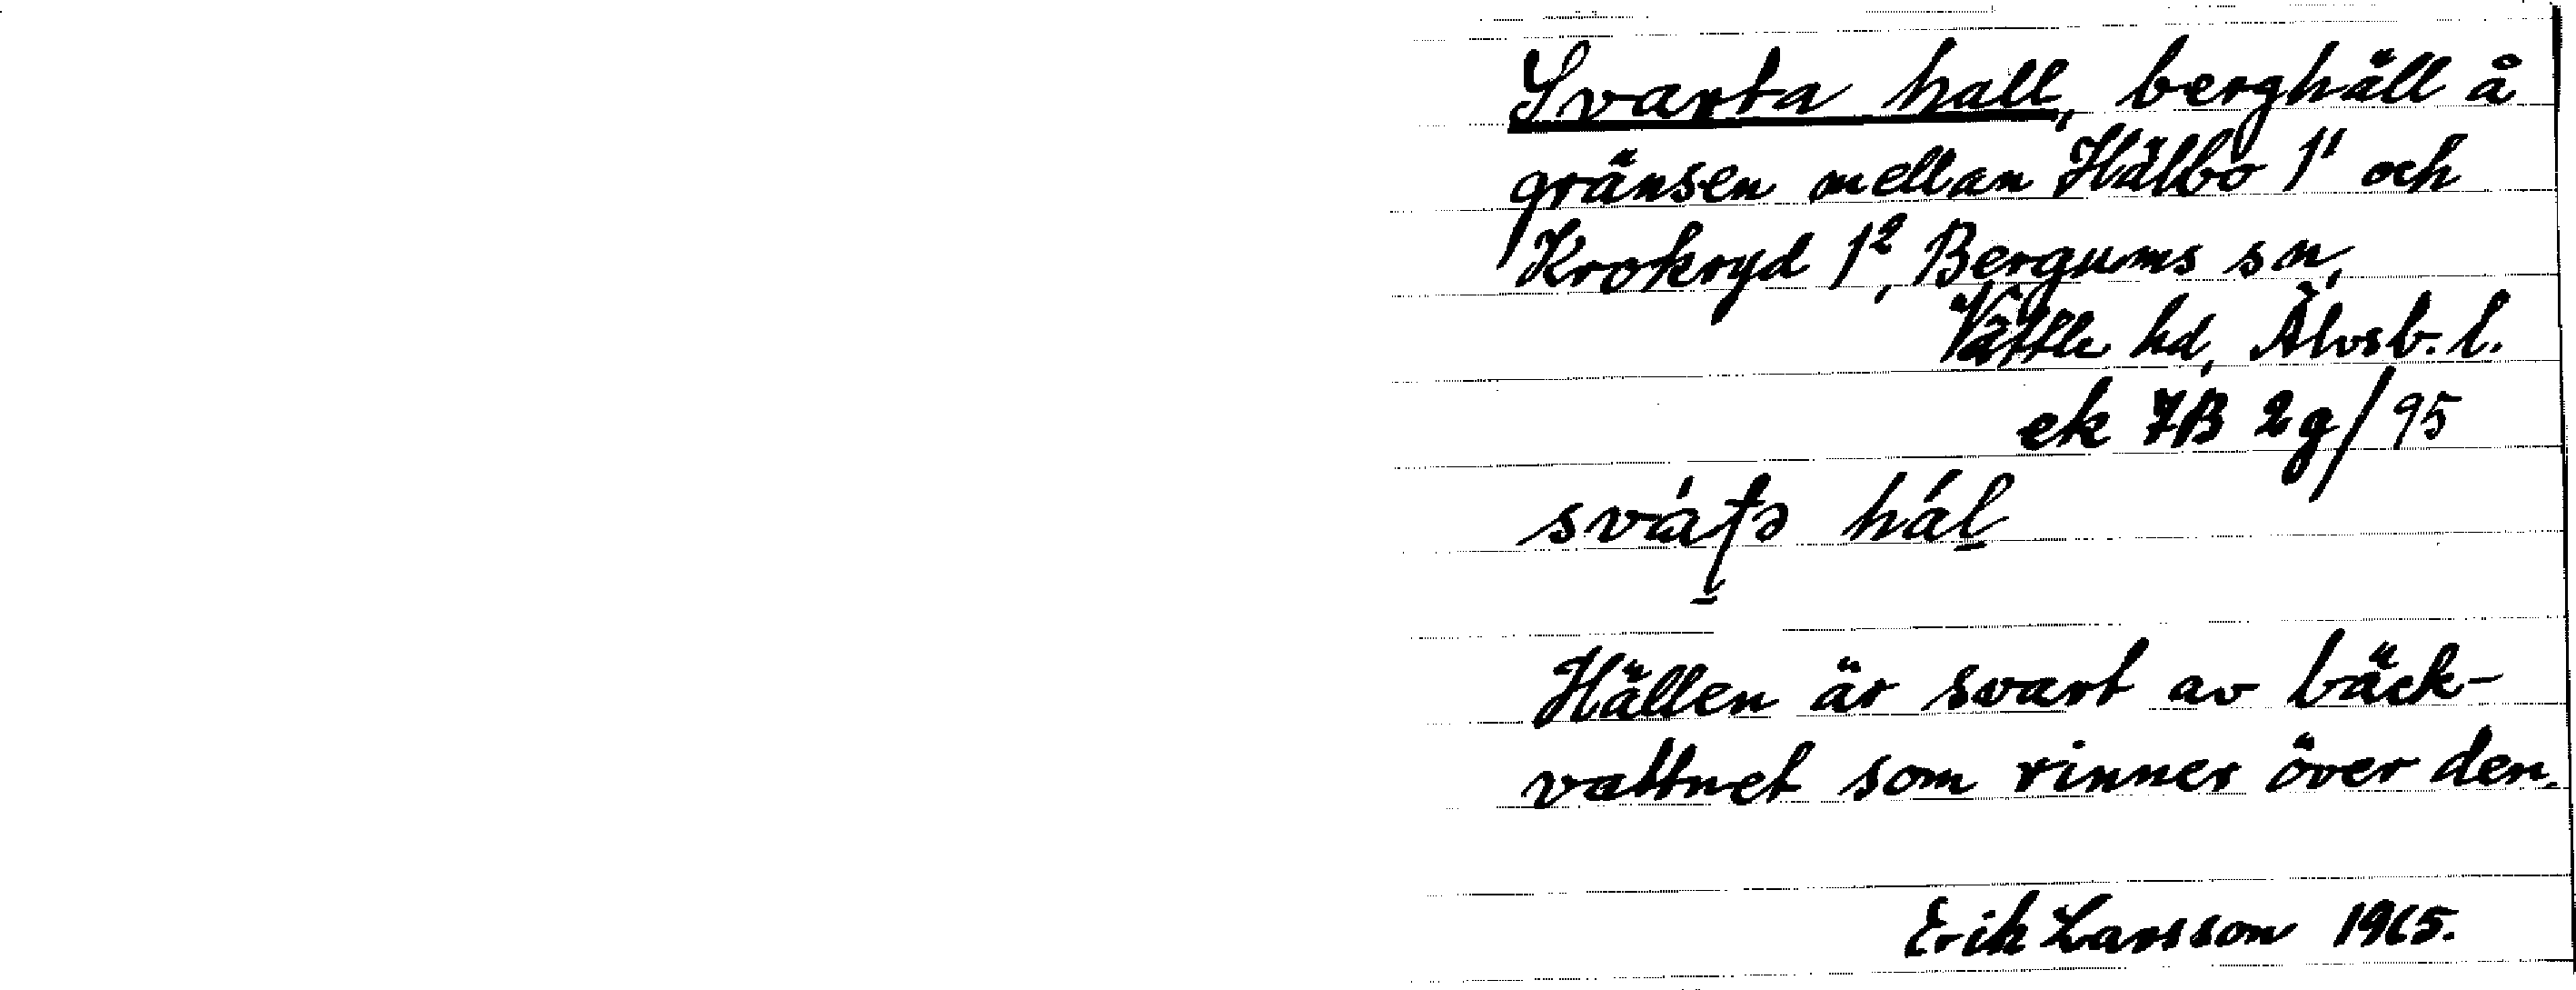 Svarta hall, berghäll å
gränsen mellan Hälbo 1¹ och
Krokryd 1², Bergums sn,
Vättle hd, Älvsb. l.
ek 7B 2g/95
hál
Hällen är svart av bäck-
vattnet som rinner över den.
Erik Larsson 1965.